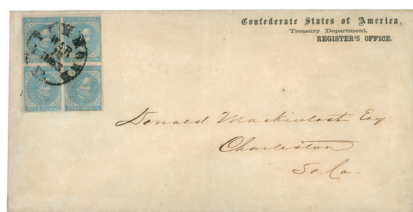 Confederate States of America,
Treasury Department,
REGISTER'S OFFICE.
Donald Mackintosh Esq
Charleston
So. Ca.